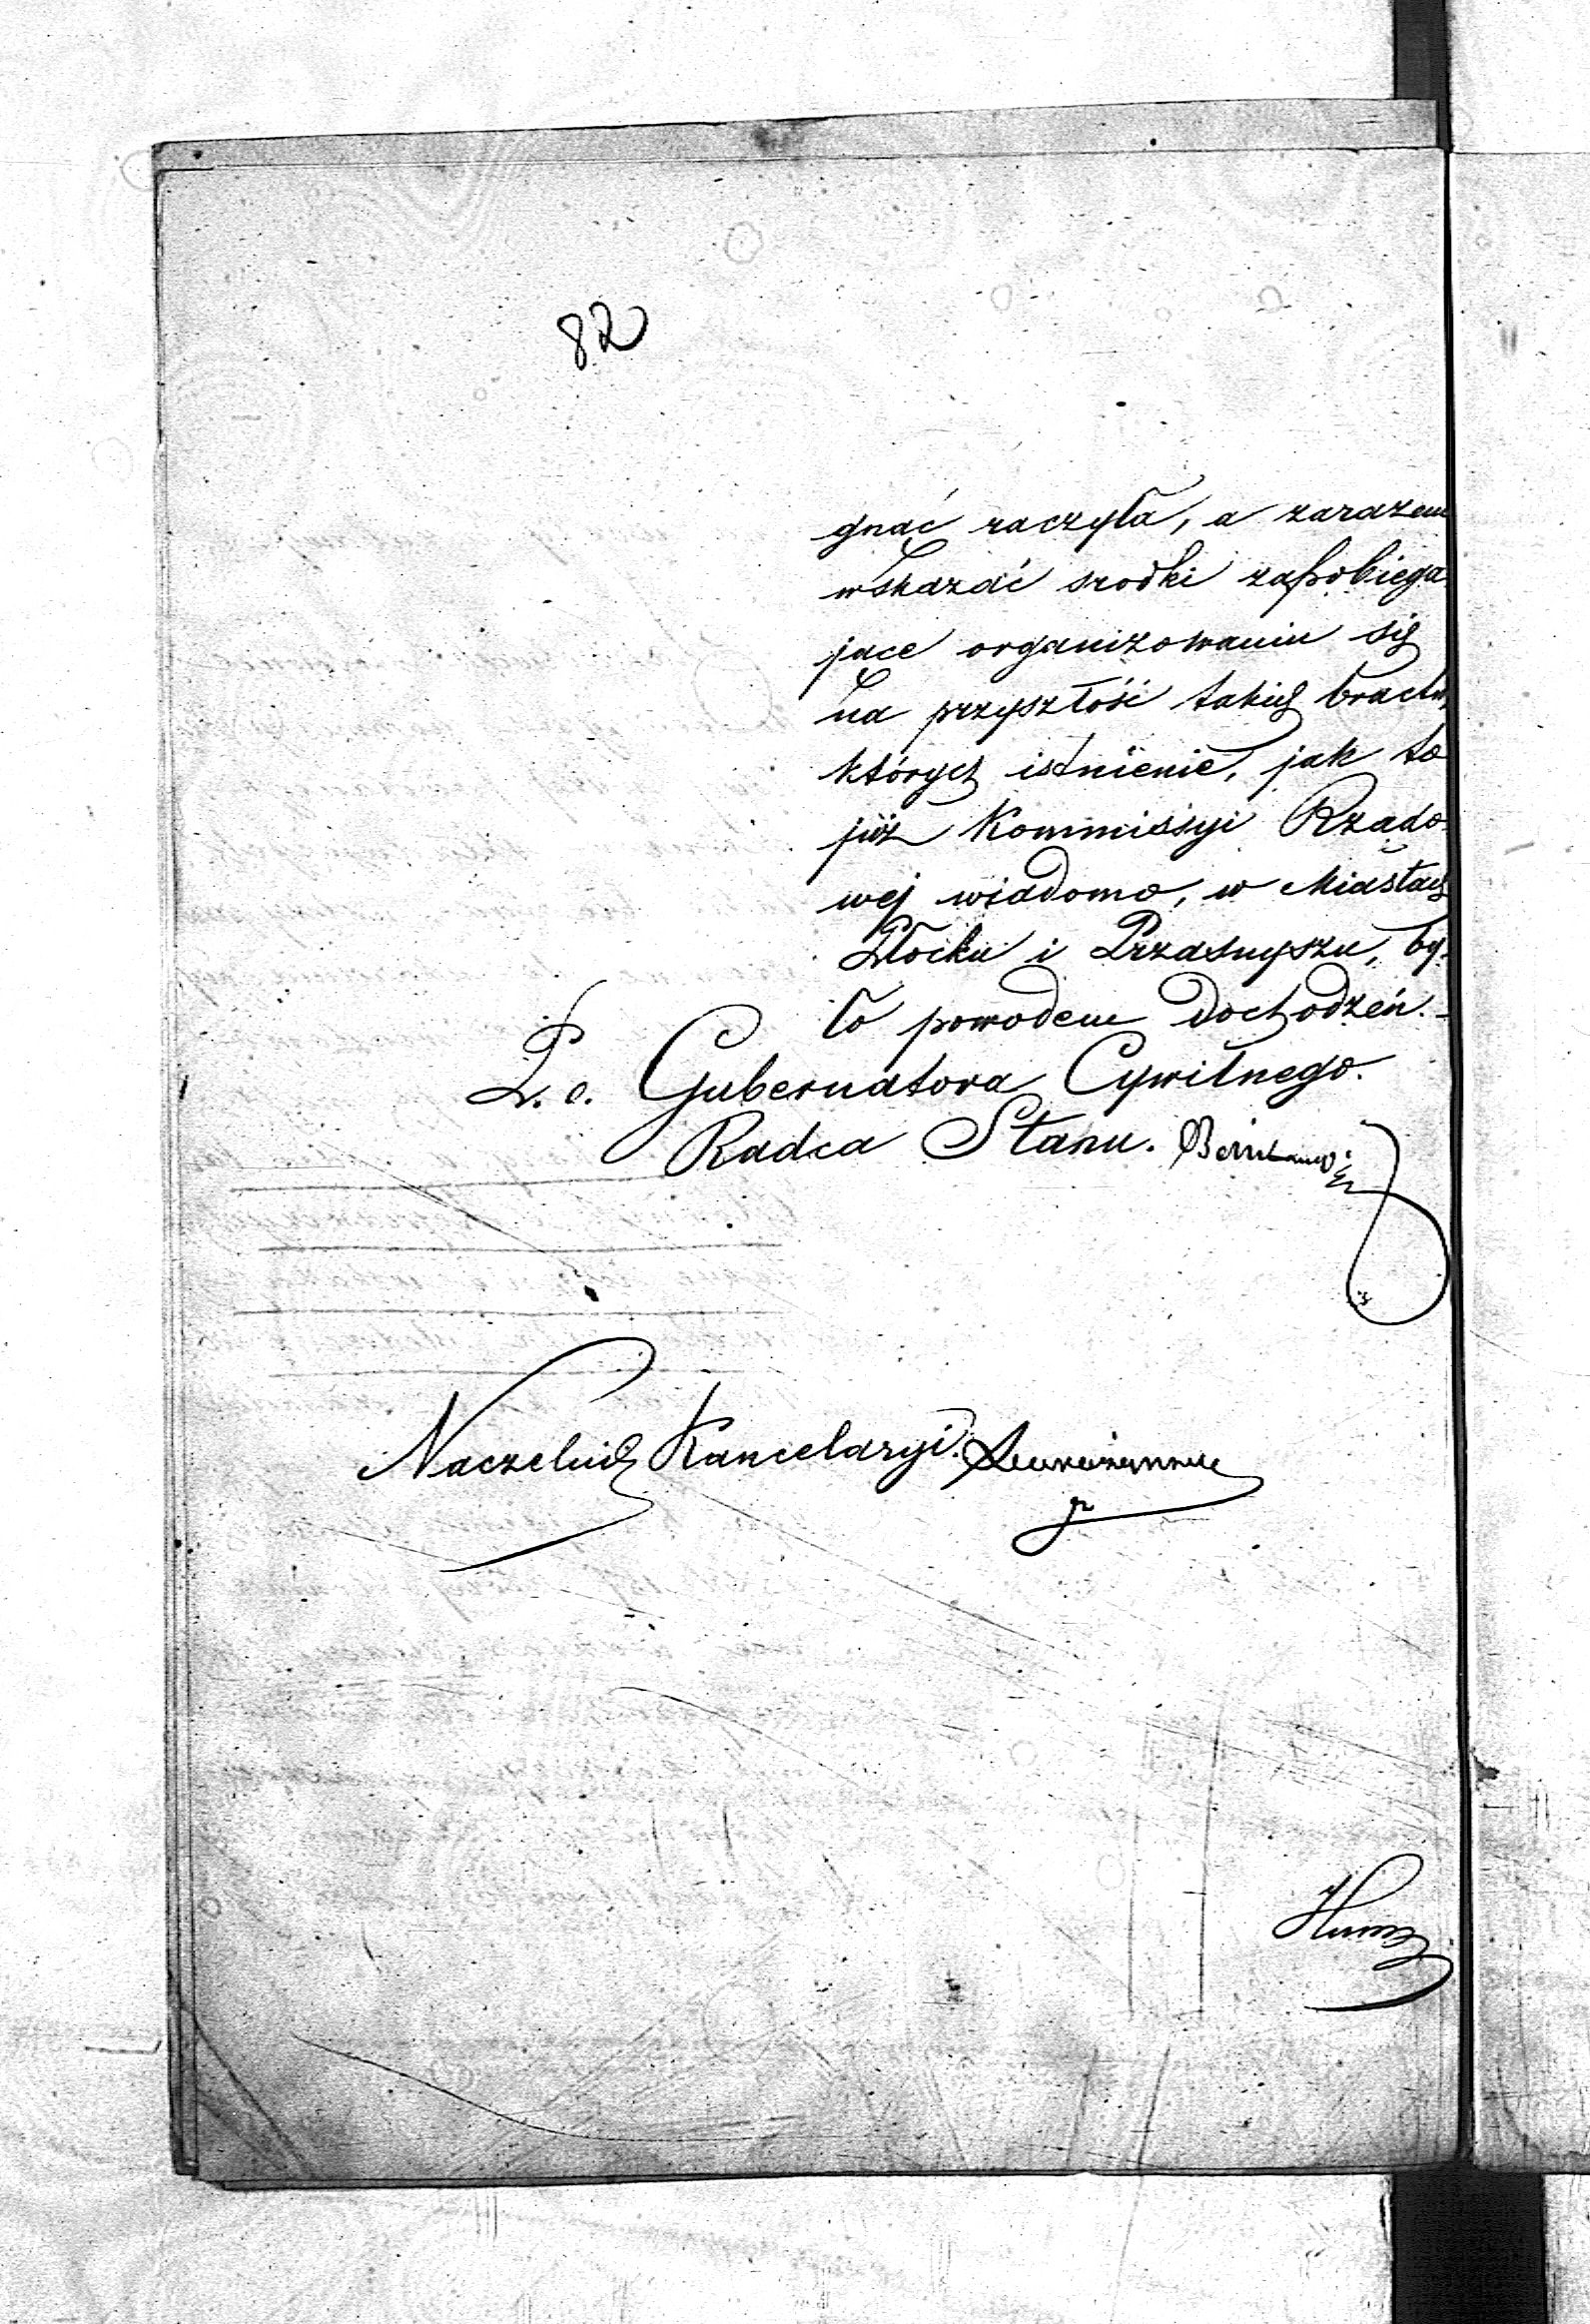 82
gnać raczyła, a zarazem
wskazać srodki zapobiega
jace organizowaniu się
na przyszłość takich bractw,
których istnienie, jak to
już Kommissyi Rządo
wej wiadomo, w Miastach
Płocku i Przasnyszu, by-
ło powodem dochodzeń.-
P. o. Gubernatora Cywilnego.
Radca Stanu.
Naczelnik Kancelaryi.